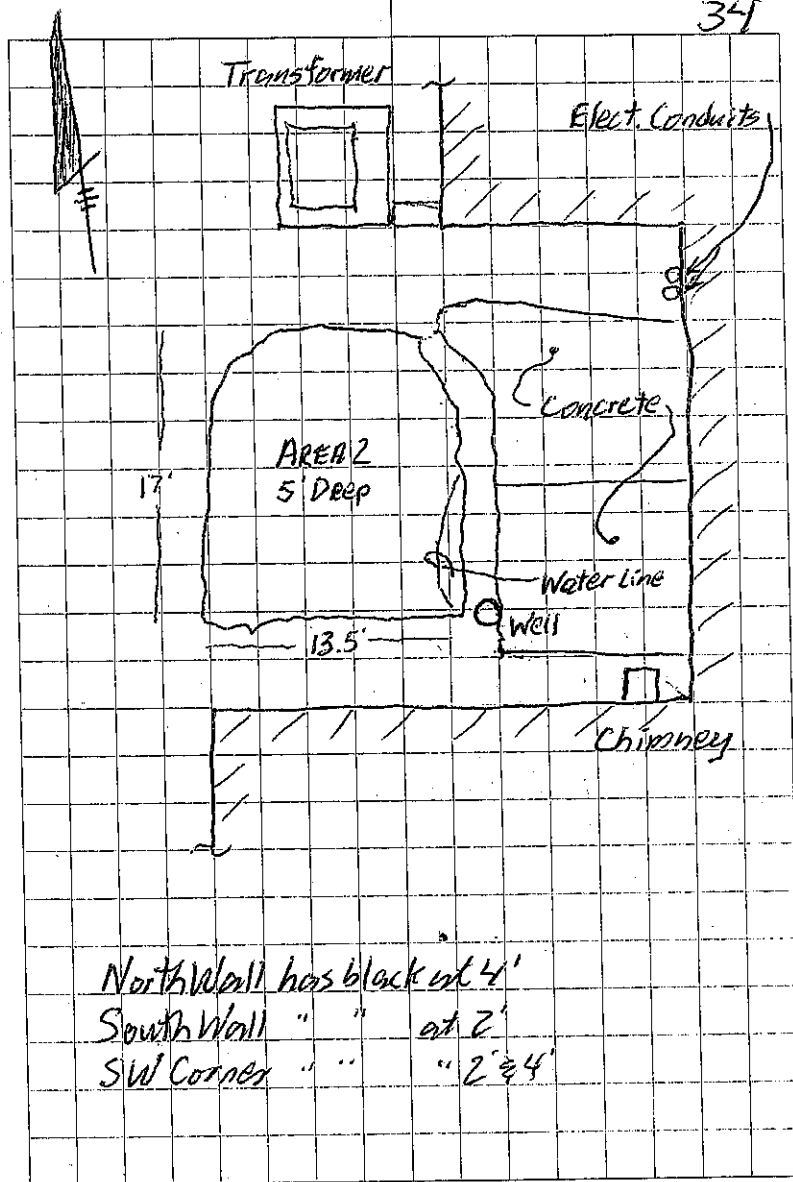 34
Transformer
Elect. Conduits
Concrete
AREA 2
5' Deep
17'
Water Line
Well
13.5'
Chimney
North Wall has black at 4'
South Wall " " at 2'
SW Corner " " " 2' & 4'